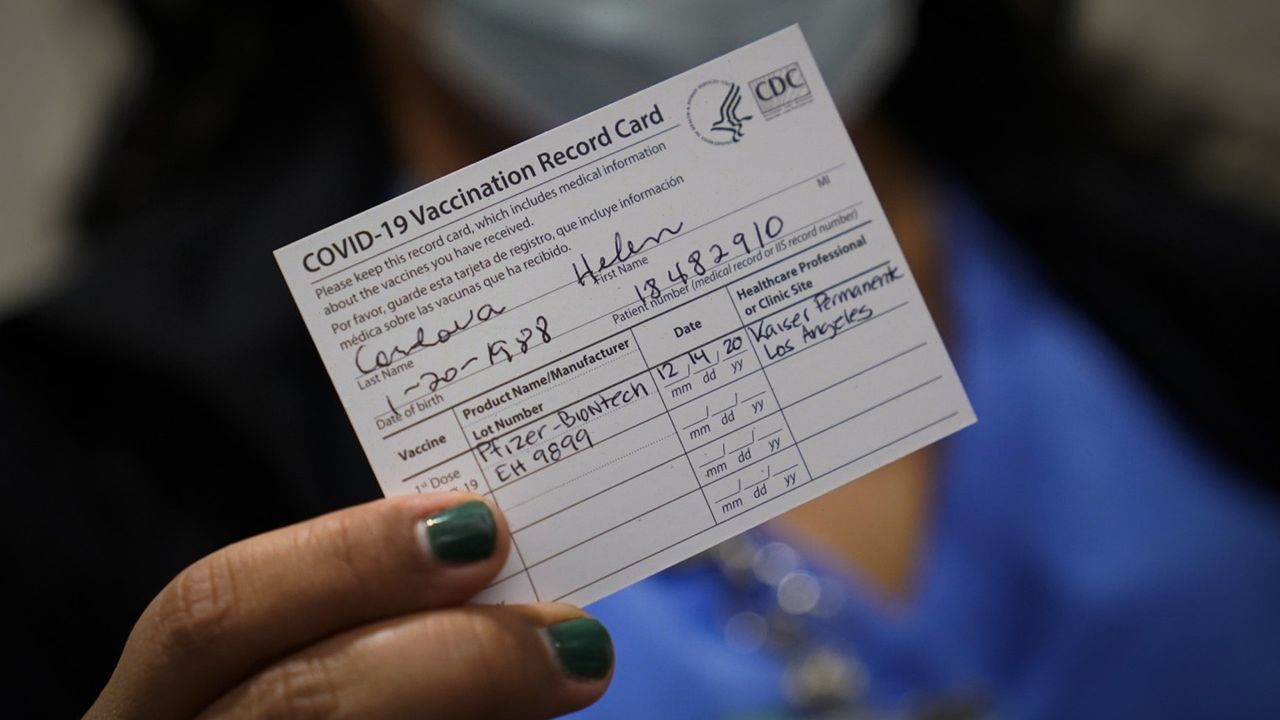 CDC
COVID-19 Vaccination Record Card
Please keep this record card, which includes medical information
about the vaccines you have received.
Por favor, guarde esta tarjeta de registro, que incluye información
médica sobre las vacunas que ha recibido.
Cordova Helen
Last Name First Name MI
1-20-1988 18482910
Date of birth Patient number (medical record or IIS record number)
Vaccine Product Name/Manufacturer Date Healthcare Professional
Lot Number or Clinic Site
1st Dose Pfizer-BioNtech 12/14/20 Kaiser Permanente
19 EH9899 mm dd yy Los Angeles
mm dd yy
mm dd yy
mm dd yy